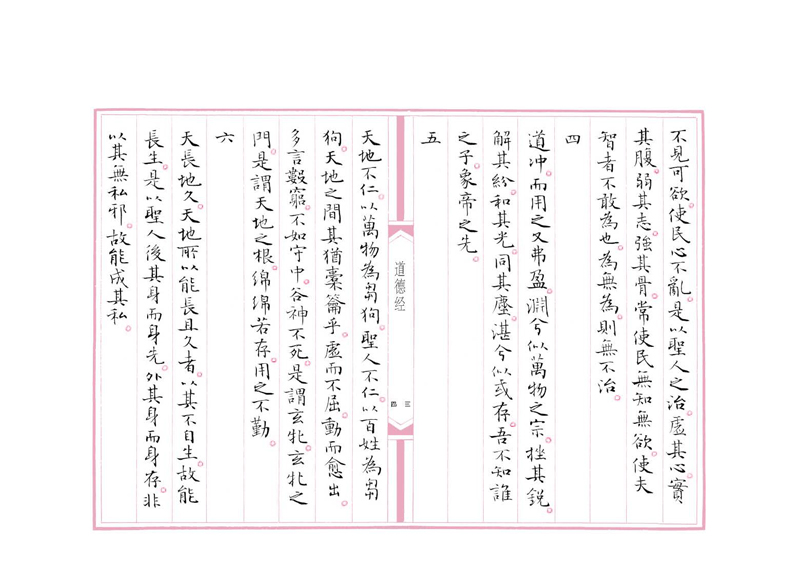 不見可欲。使民心不亂。是以聖人之治。虛其心。實
其腹。弱其志。強其骨。常使民無知無欲。使夫
智者不敢為也。為無為。則無不治。
四
道冲。而用之又弗盈。淵兮似萬物之宗。挫其銳。
解其紛。和其光。同其塵。湛兮似或存。吾不知誰
之子。象帝之先。
五
道德经
三
四
天地不仁。以萬物為芻狗。聖人不仁。以百姓為芻
狗。天地之間。其猶橐籥乎。虛而不屈。動而愈出。
多言數窮。不如守中。谷神不死。是謂玄牝。玄牝之
門。是謂天地之根。綿綿若存。用之不勤。
六
天長地久。天地所以能長且久者。以其不自生。故能
長生。是以聖人後其身而身先。外其身而身存。非
以其無私邪。故能成其私。